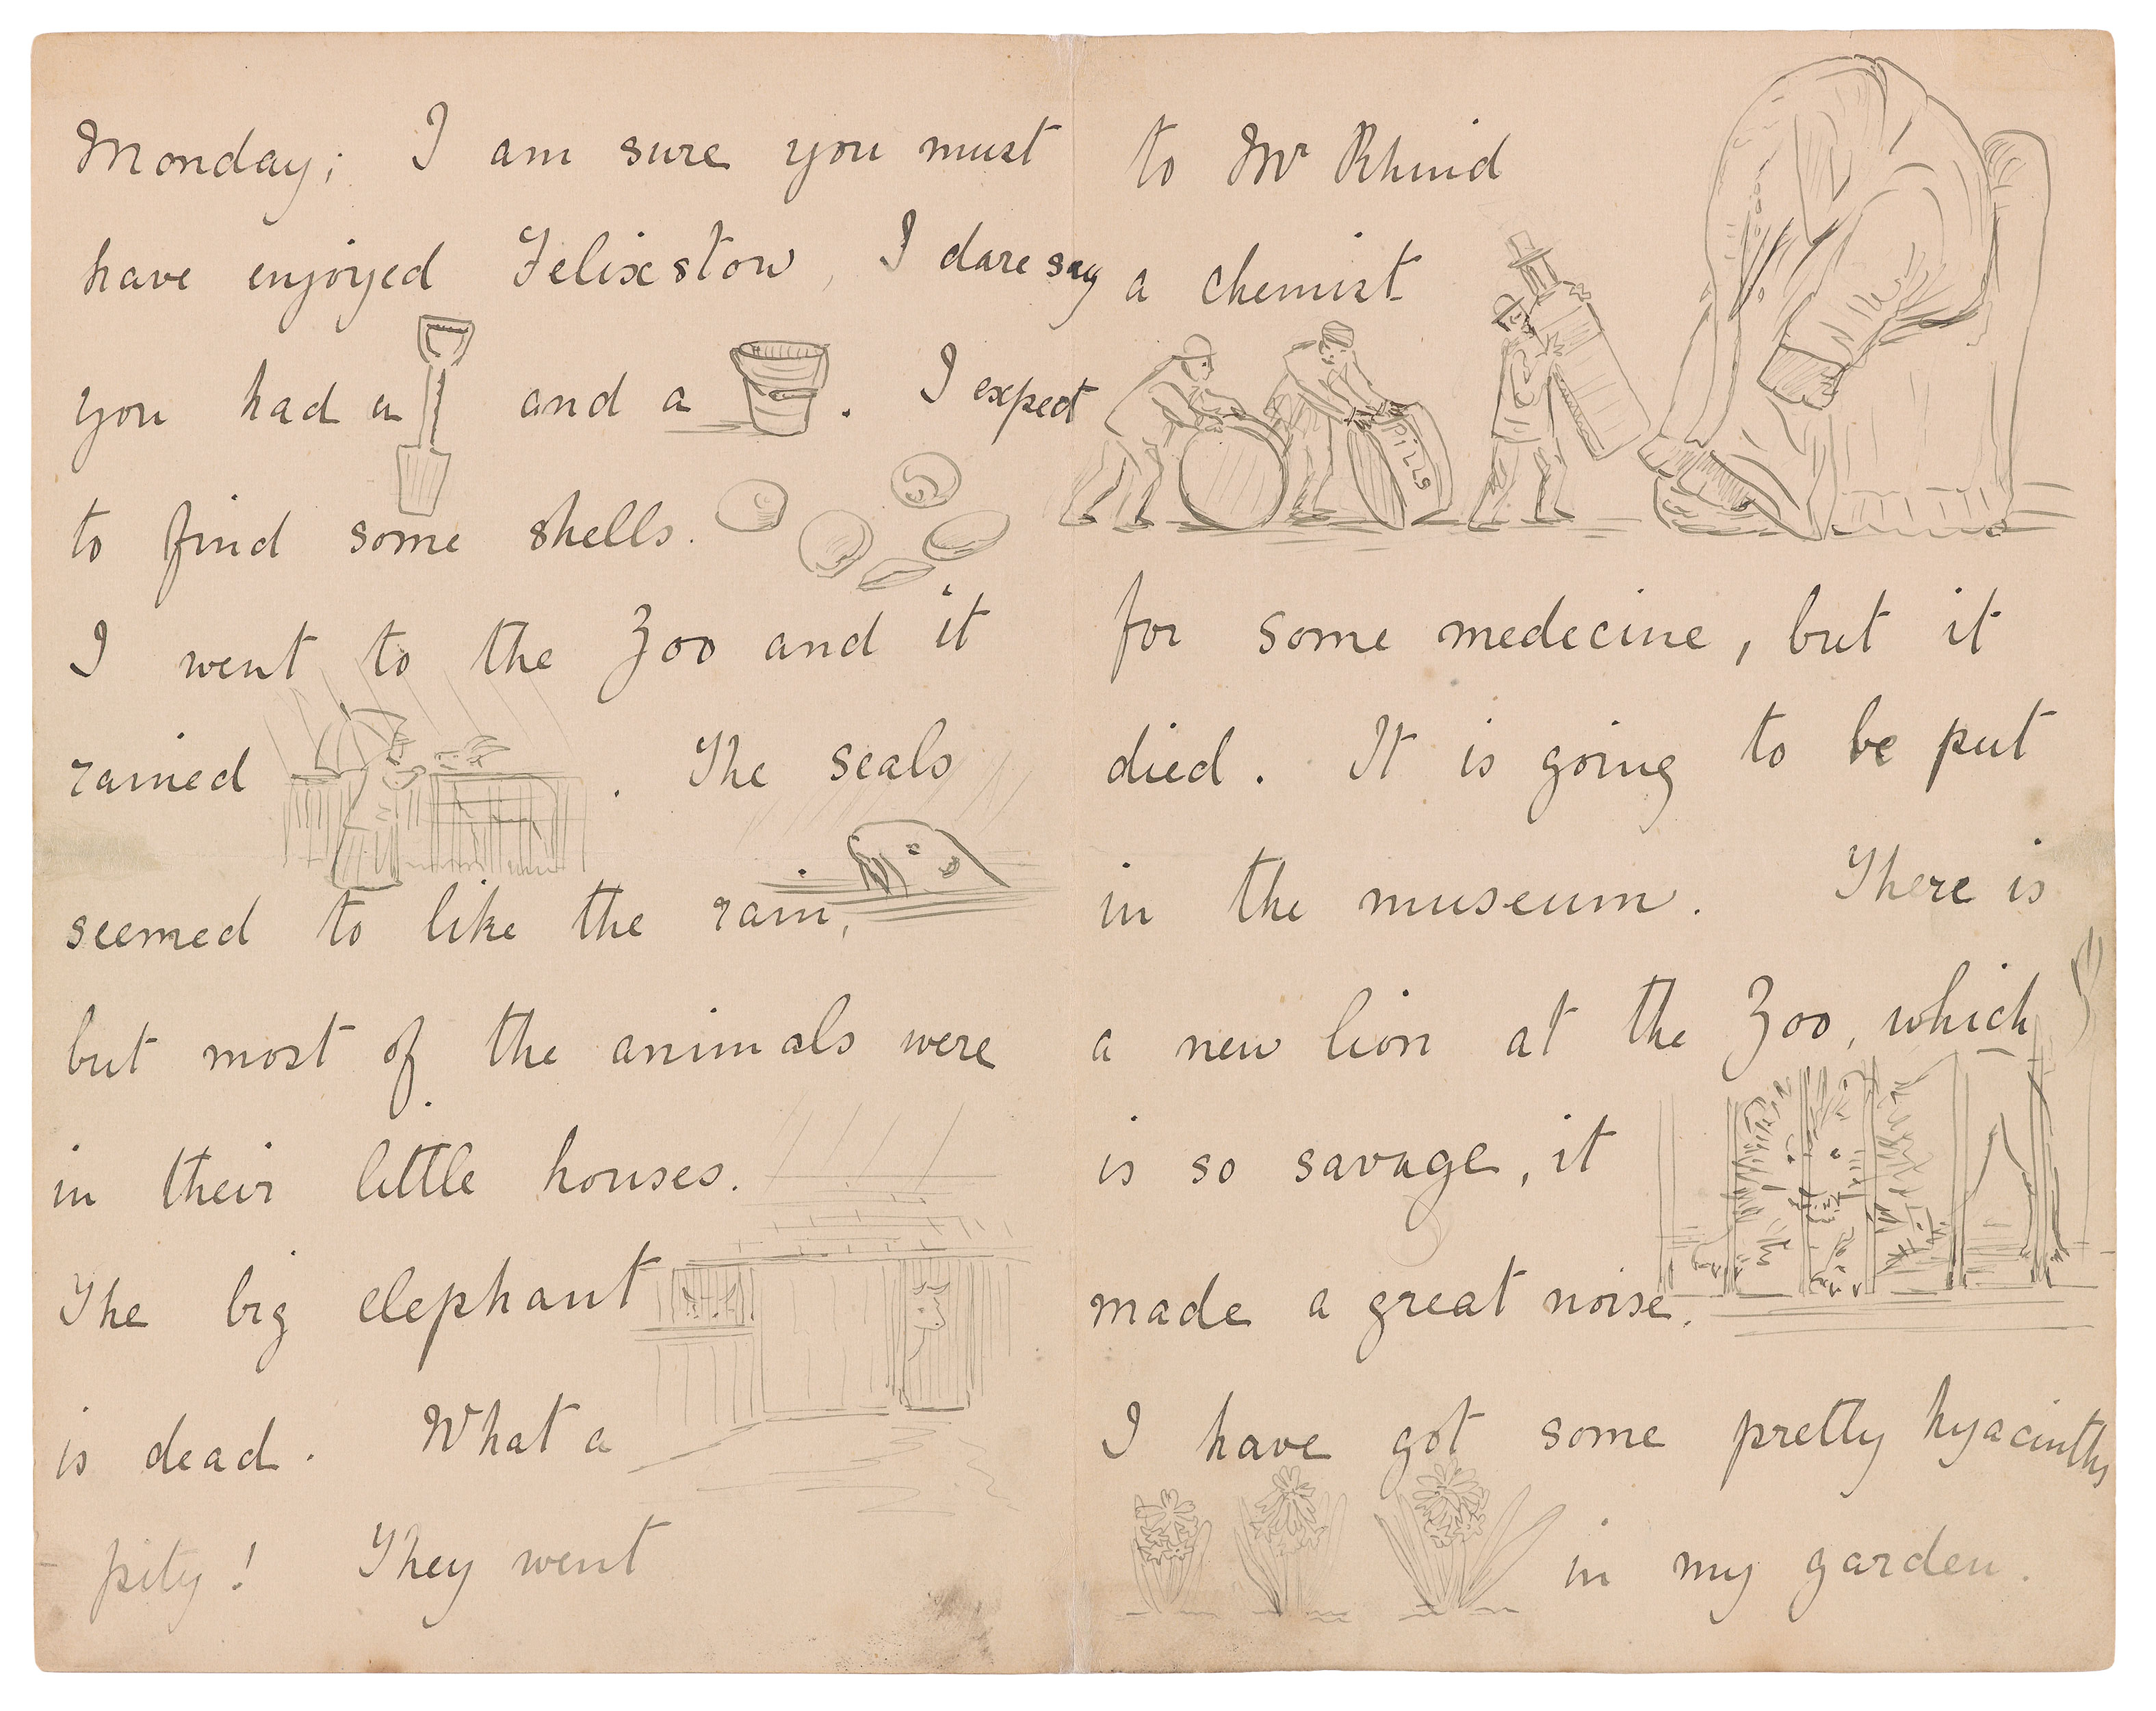 Monday; I am sure you must
have enjoyed Felixstow, I dare say
you had a and a . I expect
to find some shells.
I went to the Zoo and it
rained . The seals
seemed to like the rain,
but most of the animals were
in their little houses.
The big elephant
is dead. What a
pity! They went
to Mr Rhind
a chemist
PILLS
for some medecine, but it
died. It is going to be put
in the museum. There is
a new lion at the Zoo, which
is so savage, it
made a great noise.
I have got some pretty hyacinths
in my garden.